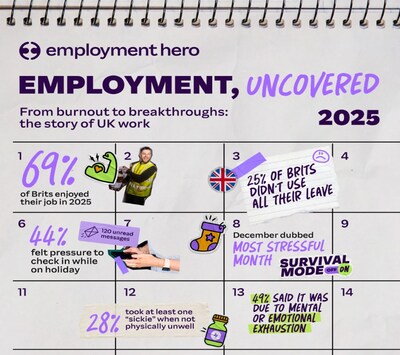 employment hero
EMPLOYMENT, UNCOVERED
From burnout to breakthroughs:
the story of UK work
2025
1
69%
of Brits enjoyed
their job in 2025
2
3
25% OF BRITS
DIDN'T USE
ALL THEIR LEAVE
4
6
44%
felt pressure to
check in while
on holiday
7
120 unread
messages
8
December dubbed
MOST STRESSFUL
MONTH
SURVIVAL
MODE OFF ON
9
11
12
28%
took at least one
"sickie" when not
physically unwell
13
49% SAID IT WAS
DUE TO MENTAL
OR EMOTIONAL
EXHAUSTION
14